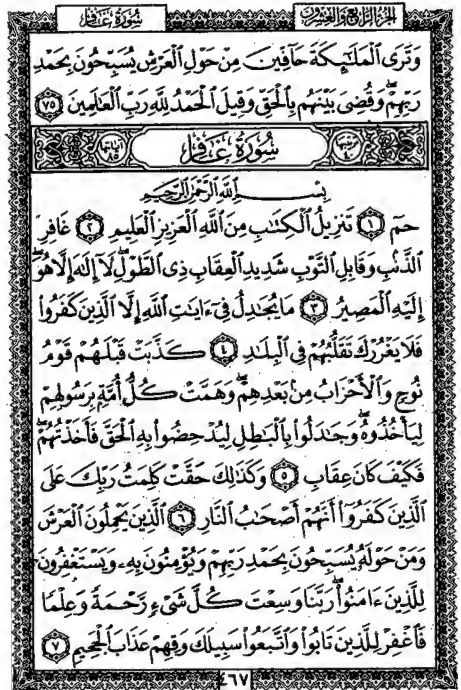 الجزء الرابع والعشرون سورة غافر
وَتَرَى ٱلْمَلَٰٓئِكَةَ حَآفِّينَ مِنْ حَوْلِ ٱلْعَرْشِ يُسَبِّحُونَ بِحَمْدِ
رَبِّهِمْ ۖ وَقُضِىَ بَيْنَهُم بِٱلْحَقِّ وَقِيلَ ٱلْحَمْدُ لِلَّهِ رَبِّ ٱلْعَٰلَمِينَ ٧٥
ترتيبها ٤٠ سُورَةُ غَافِر آياتها ٨٥
بِسْمِ ٱللَّهِ ٱلرَّحْمَٰنِ ٱلرَّحِيمِ
حمٓ ١ تَنزِيلُ ٱلْكِتَٰبِ مِنَ ٱللَّهِ ٱلْعَزِيزِ ٱلْعَلِيمِ ٢ غَافِرِ
ٱلذَّنۢبِ وَقَابِلِ ٱلتَّوْبِ شَدِيدِ ٱلْعِقَابِ ذِى ٱلطَّوْلِ ۖ لَآ إِلَٰهَ إِلَّا هُوَ ۖ
إِلَيْهِ ٱلْمَصِيرُ ٣ مَا يُجَٰدِلُ فِىٓ ءَايَٰتِ ٱللَّهِ إِلَّا ٱلَّذِينَ كَفَرُوا۟
فَلَا يَغْرُرْكَ تَقَلُّبُهُمْ فِى ٱلْبِلَٰدِ ٤ كَذَّبَتْ قَبْلَهُمْ قَوْمُ
نُوحٍ وَٱلْأَحْزَابُ مِنۢ بَعْدِهِمْ ۖ وَهَمَّتْ كُلُّ أُمَّةٍۭ بِرَسُولِهِمْ
لِيَأْخُذُوهُ ۖ وَجَٰدَلُوا۟ بِٱلْبَٰطِلِ لِيُدْحِضُوا۟ بِهِ ٱلْحَقَّ فَأَخَذْتُهُمْ ۖ
فَكَيْفَ كَانَ عِقَابِ ٥ وَكَذَٰلِكَ حَقَّتْ كَلِمَتُ رَبِّكَ عَلَى
ٱلَّذِينَ كَفَرُوٓا۟ أَنَّهُمْ أَصْحَٰبُ ٱلنَّارِ ٦ ٱلَّذِينَ يَحْمِلُونَ ٱلْعَرْشَ
وَمَنْ حَوْلَهُۥ يُسَبِّحُونَ بِحَمْدِ رَبِّهِمْ وَيُؤْمِنُونَ بِهِۦ وَيَسْتَغْفِرُونَ
لِلَّذِينَ ءَامَنُوا۟ رَبَّنَا وَسِعْتَ كُلَّ شَىْءٍ رَّحْمَةً وَعِلْمًا
فَٱغْفِرْ لِلَّذِينَ تَابُوا۟ وَٱتَّبَعُوا۟ سَبِيلَكَ وَقِهِمْ عَذَابَ ٱلْجَحِيمِ ٧
٤٦٧